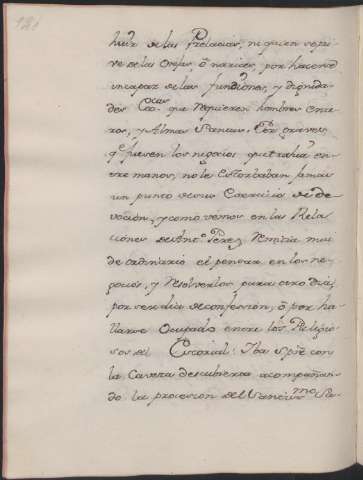 121
huir de las Prelacias, ni quien se pri-
ve de las Orejas, ô narices, por hacerse
incapaz de las funciones, y dignida-
des Ecc.cas que requieren hombres ente-
ros, y Almas Santas. Por graves,
q.e fuesen los negocios que trahia en-
tre manos, no le estorbaban jamas
un punto de sus Exercicios de de-
vocion, y como vemos en las Rela-
ciones de Ant.o Perez remitia mui
de ordinario el pensar en los ne-
gocios, y resolverlos para otro dia,
por ser dia de confesion, ô por ha-
llarse Ocupado entre los Religio-
sos del Escorial: Iba Spre con
la Caveza descubierta acompañan-
do la procesion del Santis.mo Sa-